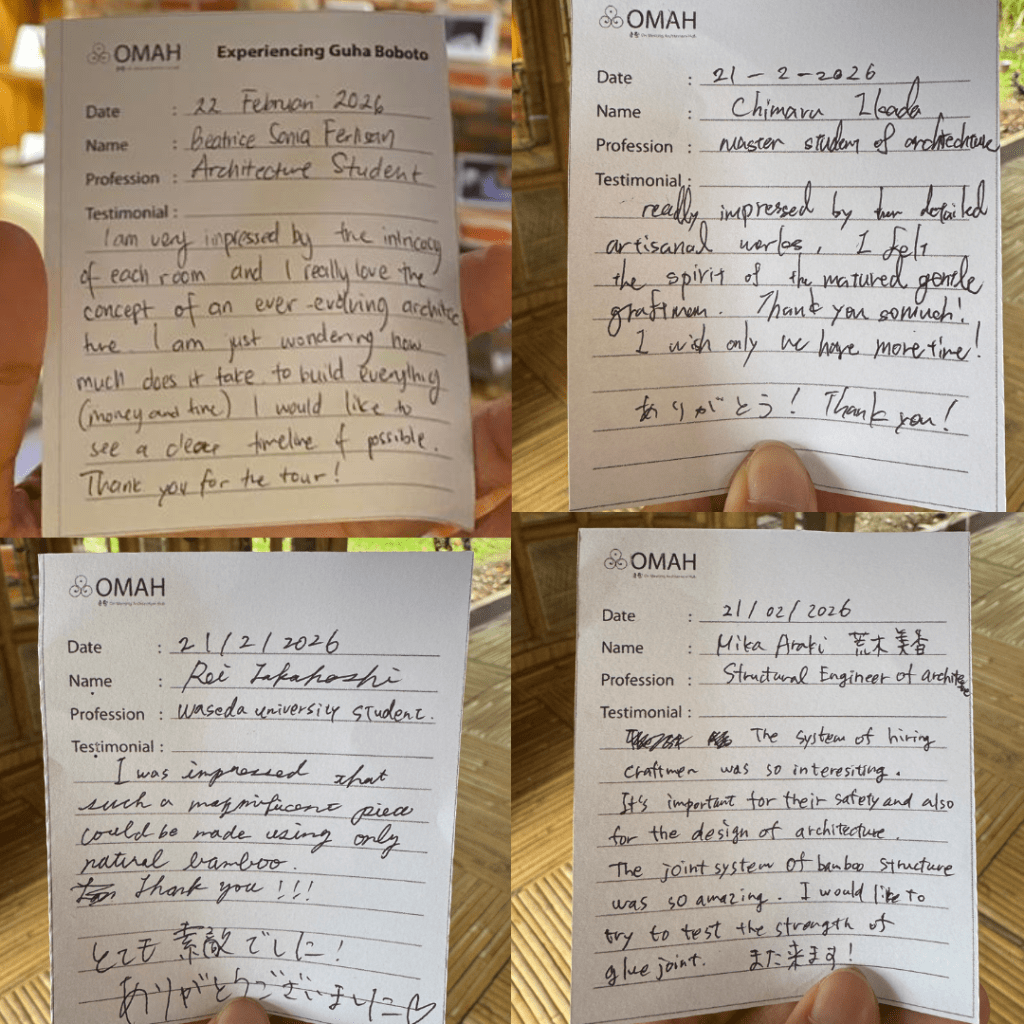 OMAH
Experiencing Guha Boboto
Date : 22 Februari 2026
Name : Beatrice Sonia
Profession : Architecture Student
Testimonial :
I am very impressed by the intricacy
of each room and I really love the
concept of an ever-evolving architec
ture. I am just wondering how
much does it take to build everything
(money and time) I would like to
see a clear timeline if possible.
Thank you for the tour!
OMAH
Date : 21-2-2026
Name : Chimaru
Profession : Master student of architechture
Testimonial :
really impressed by the detailed
artisanal works, I felt
the spirit of the matured gentle
graftman. Thank you somuch!
I wish only we have more time!
ありがとう! Thank you!
OMAH
Date : 21/2/2026
Name : Rei Takahashi
Profession : Waseda university student.
Testimonial :
I was impressed that
such a magnificent piece
could be made using only
natural bamboo.
Thank you!!!
とても素敵でした!
ありがとうございました♡
OMAH
Date : 21/02/2026
Name : Mika Araki 荒木美香
Profession : Structural Engineer of architecture
Testimonial :
The system of hiring
craftmen was so interesiting.
It's important for their safety and also
for the design of architecture.
The joint system of bamboo structure
was so amazing. I would like to
try to test the strength of
glue joint. また来ます!